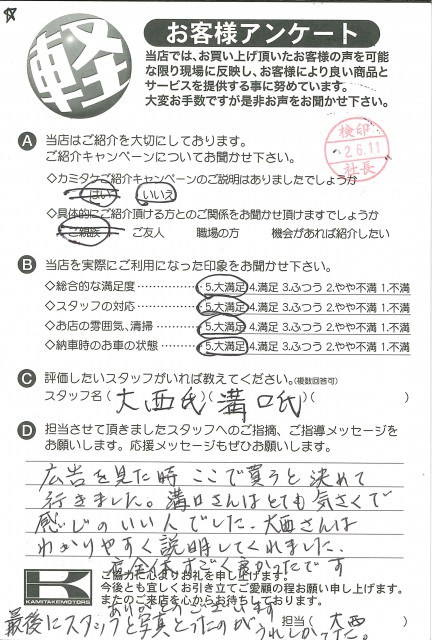 軽
お客様アンケート
当店では、お買い上げ頂いたお客様の声を可能
な限り現場に反映し、お客様により良い商品と
サービスを提供する事に努めています。
大変お手数ですが是非お声をお聞かせ下さい。
検印
2.6.11
社長
A 当店はご紹介を大切にしております。
ご紹介キャンペーンについてお聞かせ下さい。
◇カミタケご紹介キャンペーンのご説明はありましたでしょうか
はい いいえ
◇具体的にご紹介頂ける方とのご関係をお聞かせ頂けますでしょうか
ご親族 ご友人 職場の方 機会があれば紹介したい
B 当店を実際にご利用になった印象をお聞かせ下さい。
◇総合的な満足度 ………… 5.大満足 4.満足 3.ふつう 2.やや不満 1.不満
◇スタッフの対応 ………… 5.大満足 4.満足 3.ふつう 2.やや不満 1.不満
◇お店の雰囲気、清掃 …… 5.大満足 4.満足 3.ふつう 2.やや不満 1.不満
◇納車時のお車の状態 …… 5.大満足 4.満足 3.ふつう 2.やや不満 1.不満
C 評価したいスタッフがいれば教えてください。(複数回答可)
スタッフ名 ( 大西氏 )( 溝口氏 )( )
D 担当させて頂きましたスタッフへのご指摘、ご指導メッセージを
お願いします。応援メッセージもぜひお願いします。
広告を見た時 ここで買うと決めて
行きました。溝口さんはとても気さくで
感じのいい人でした。大西さんは
わかりやすく説明してくれました。
店全体すごく良かったです
ありがとうございます
K
KAMITAKEMOTORS
ご協力に心よりお礼を申し上げます。
今後とも宜しくお引き立てご愛顧の程お願い申し上げます。
またのご来店を心からお待ちしております。
担当 ( 大西 )
最後にスタッフと写真とったのが うれしかったです。